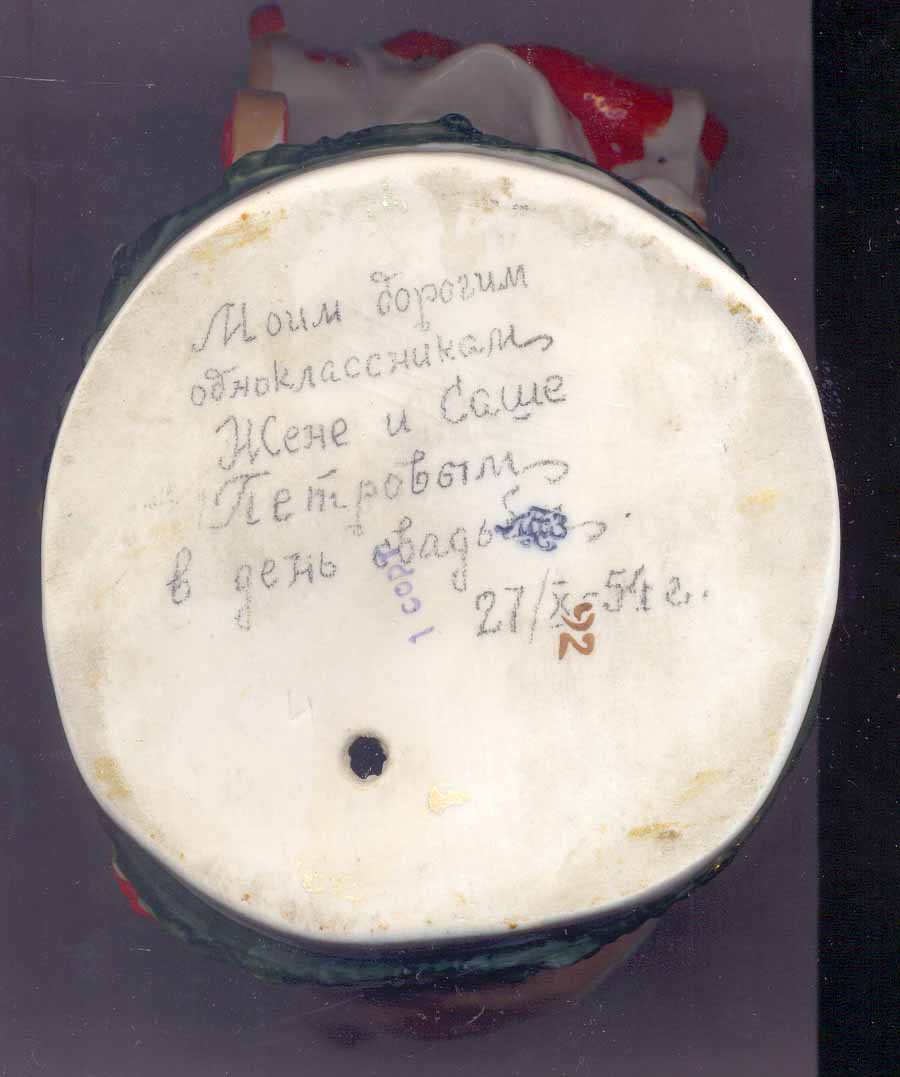 Моим дорогим
одноклассникам
Жене и Саше
Петровым
в день свадьбы.
27/X-54 г.
1 СОРТ
92